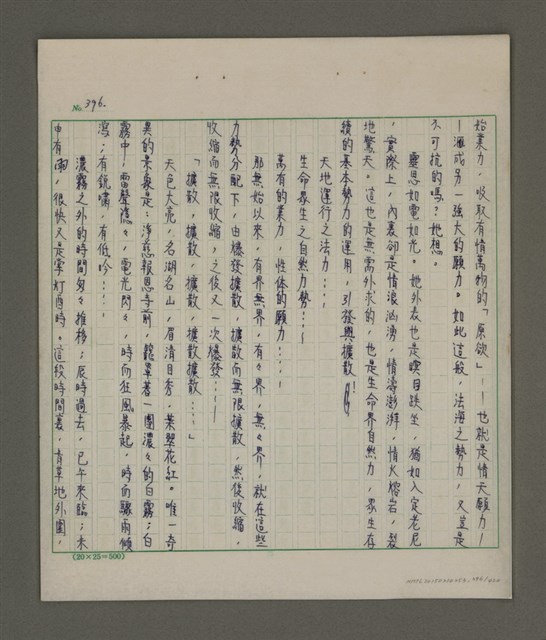 No. 396.
始業力，吸取有情萬物的「原欲」——也就是情天願力—
—滙成另一強大的願力。如此這般，法海之勢力，又豈是
不可抗的嗎？她想。
靈思如電如光。她外表也是瞑目趺坐，猶如入定老尼
，實際上，內裏卻是情浪洶湧，情濤澎湃，情火熔岩，裂
地驚天。這也是無需外求的，也是生命界自然力，眾生存
續的基本勢力的運用，引發與擴散！
天地運行之法力……
生命眾生之自然力勢……
萬有的業力，性体的願力……
那無始以來，有界無界，有々界，無々界，就在這些
力勢分配下，由爆發擴散，擴散而無限擴散，然後收縮，
收縮而無限收縮，之後又一次爆發……
「擴散，擴散，擴散，擴散擴散……」
天色大亮，名湖名山，眉清目秀，葉翠花紅。唯一奇
異的景象是：淨慈報恩寺前，籠罩著一團濃々的白霧；白
霧中，雷聲隱々，電光閃々，時而狂風暴起，時而驟雨傾
瀉；有銳嘯，有低吟……
濃霧之外的時間匆々推移；辰時過去，巳午來臨；未
申有雨，很快又是掌灯酉時。這段時間裏，青草地外圍，
(20×25=500)